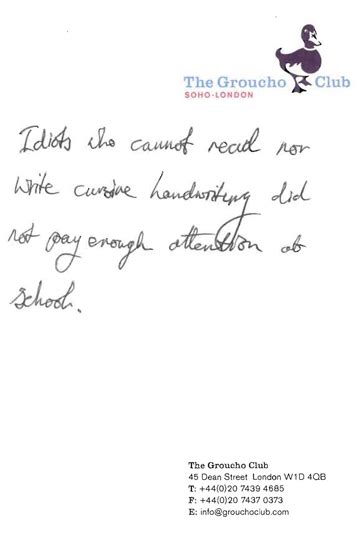 The Groucho Club
SOHO-LONDON
Idiots who cannot read nor
write cursive handwriting did
not pay enough attention at
school.
The Groucho Club
45 Dean Street London W1D 4QB
T: +44(0)20 7439 4685
F: +44(0)20 7437 0373
E: info@grouchoclub.com